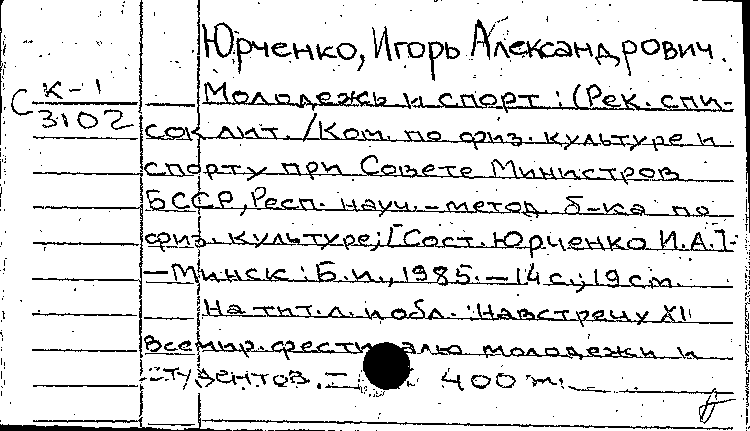 Юрченко, Игорь Александрович.
С К-1
3102
Молодежь и спорт: (Рек. спи-
сок лит. / Ком. по физ. культуре и
спорту при Совете Министров
БССР, Респ. науч.-метод. б-ка по
физ. культуре; [Сост. Юрченко И.А.]-
—Минск: Б.и., 1985.—14 с.; 19 cm.
На тит.л. и обл.: Навстречу XII
Всемир. фестивалю молодежи и
студентов. — 400 т.